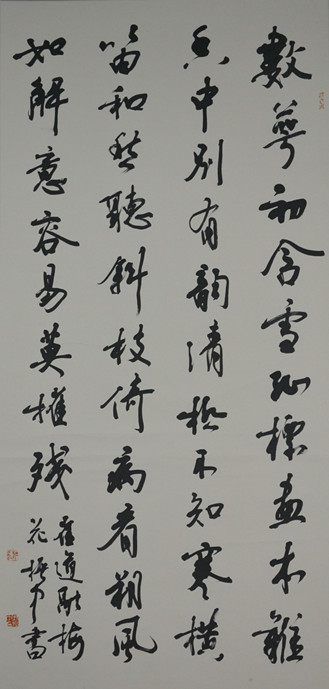 數萼初含雪孤標畫本難
香中別有韻清極不知寒橫
笛和愁聽斜枝倚病看朔風
如解意容易莫摧殘
崔道融梅
花 書